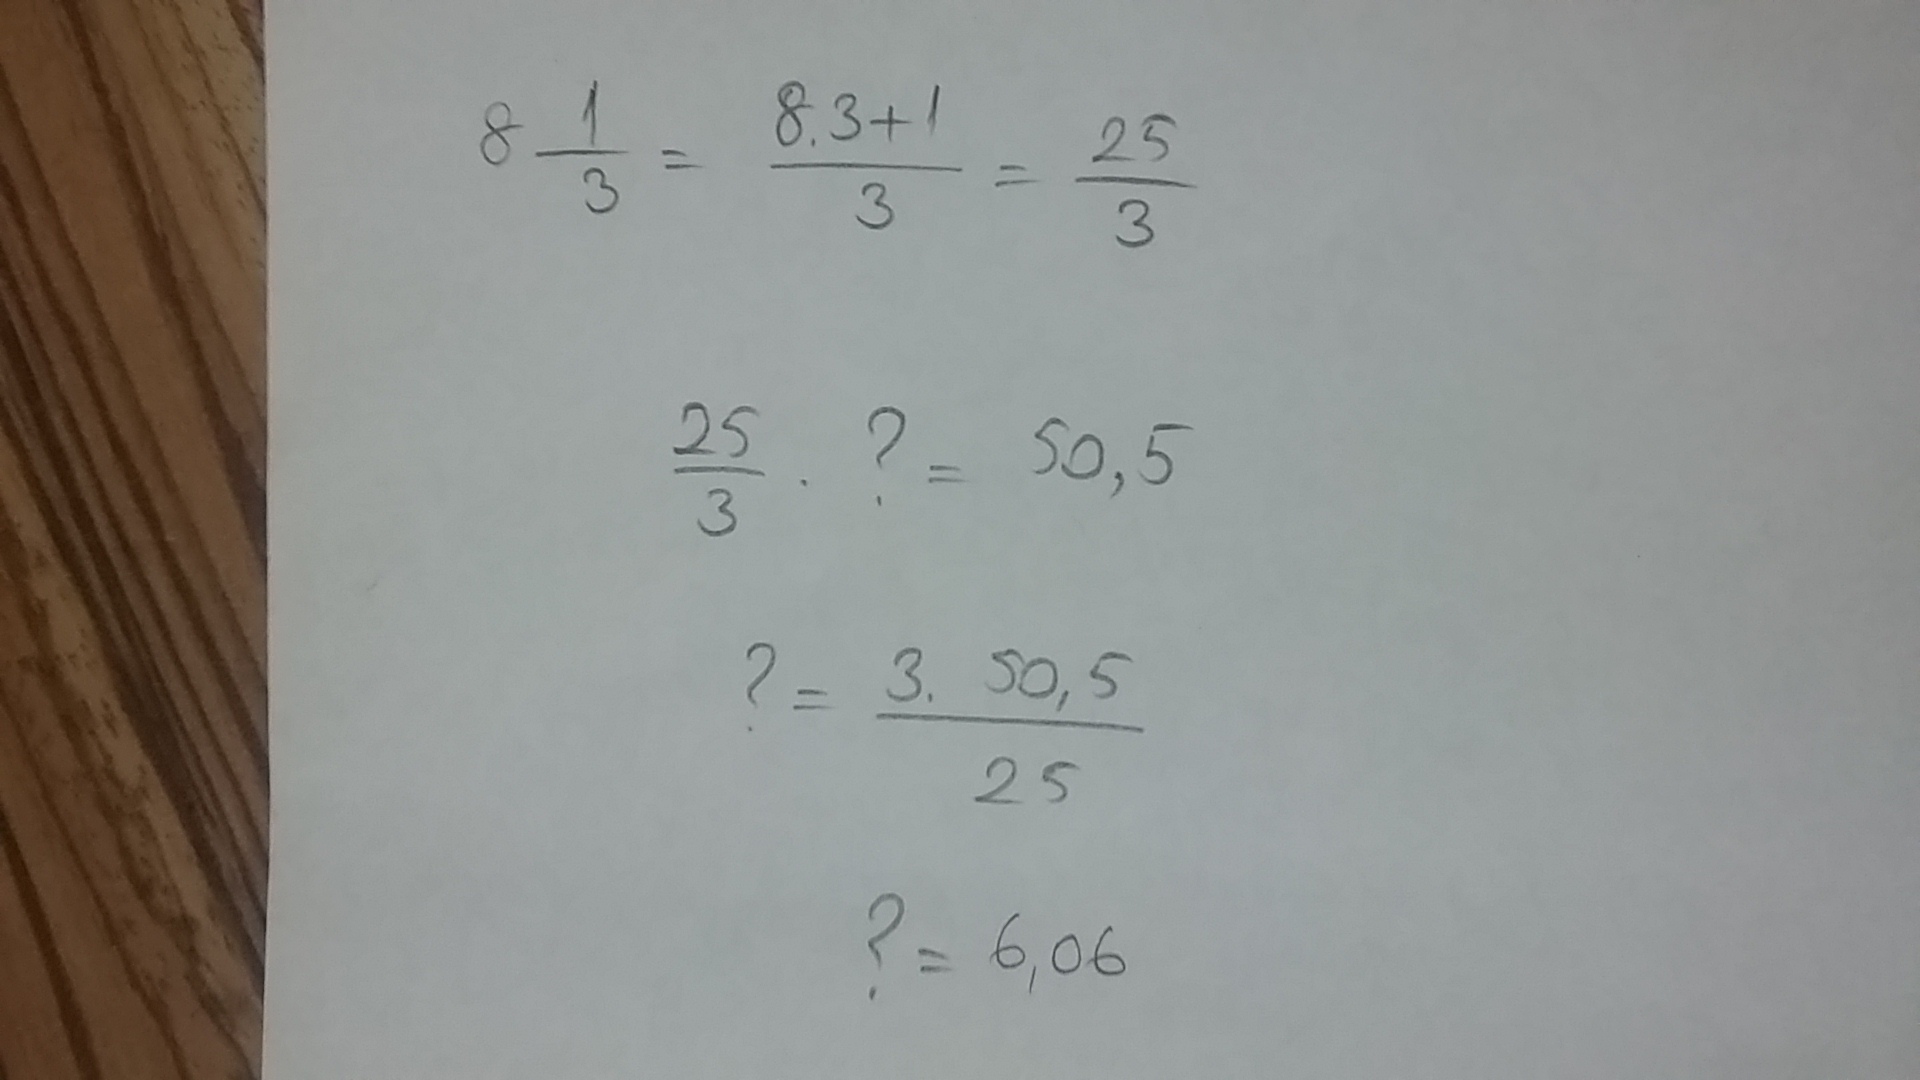 8 1/3 = 8.3+1/3 = 25/3
25/3 . ? = 50,5
? = 3. 50,5/25
? = 6,06